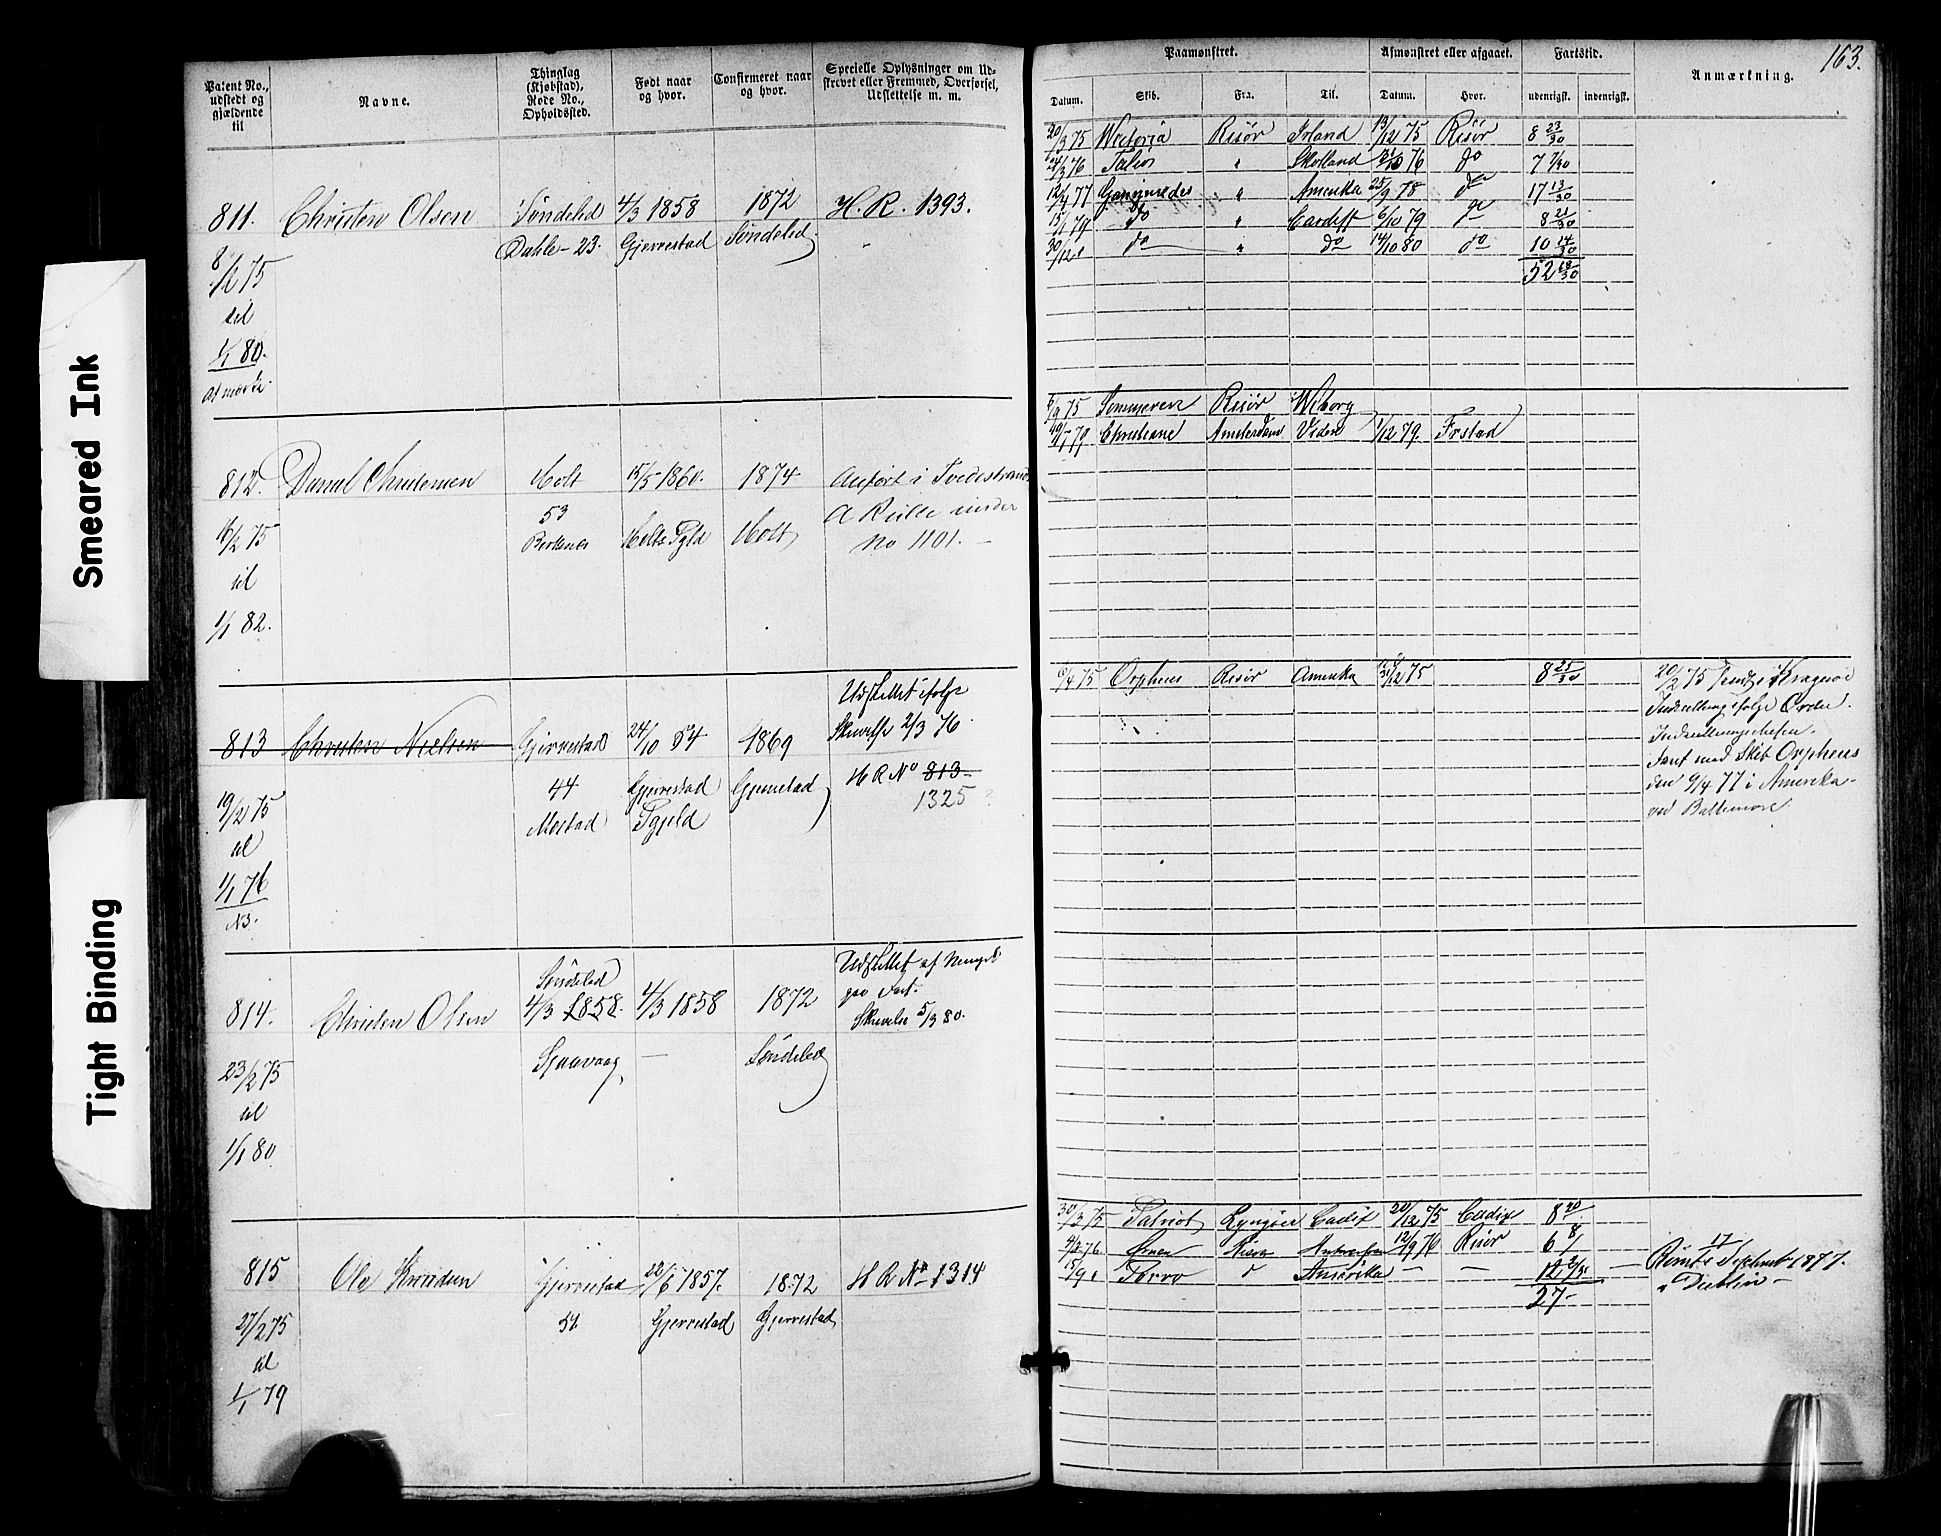 Smeared Ink
Tight Binding
163.
Patent No., udstedt og gjældende til
Navne.
Thinglag (Kjøbstad), Rode No., Opholdssted.
Født naar og hvor.
Confirmeret naar og hvor.
Specielle Oplysninger om Udskrevet eller Fremmed, Overførsel, Udslettelse m. m.
Paamønstret.
Afmønstret eller afgaaet.
Fartstid.
Anmærkning.
Datum. Skib. Fra. Til. Datum. Hvor. udenrigsk. indenrigsk.
811. Christen Olsen Søndeled 4/3 1858 1872 H. R. 1393.
Dahle - 23. Gjerrestad Søndeled
8/2 75
til
1/1 80.
20/3 75 Victoria Risør Irland 13/12 75 Risör 8 23/30
24/3 76 " Skotland 76 do 7 7/30
12/4 77 Ganymedes " Amerika 25/9 78 do 17 13/30
15/1 79 do " Cardiff 6/10 79 do 8 21/30
30/12 " do " do 14/10 80 do 10 14/30
52 18/30
812. Daniel Christensen Holt 15/5 1860. 1874 Anført i Tvedestrand
53 A Rulle under
16/2 75 Holts Pgld Holt No 1101.
til
1/1 82.
6/9 75 Risör Wiborg
79 Christiane Amsterdam 1/12 79. Frstad
813 Christen Nielsen Gjerrestad 24/10 54 1869 Udslettet ifølge
Skrivelse 2/3 76.
44 Gjerrestad Gjerrestad H R No 813
Mostad Pgjeld 1325
19/2 75
til
1/1 76
N3.
6/4 75 Orpheus Risör Amerika 31/12 75 8 25/30
20/2 75 i Kragerø
Ordre
Skib Orpheus
den 9/4 77 i Amerika
ved Baltimore
814. Christen Olsen Søndeled
4/3 1858. 4/3 1858 1872 Udslettet af Mangel
paa Fart.
Skrivelse 5/3 80.
Sjaavaag — Søndeled
23/2 75
til
1/1 80
815 Ole Knudsen Gjerrestad 22/6 1857. 1872 H R No 1314
51 Gjerrestad Gjerrestad
27/2 75
til
1/1 79
30/3 75 Patriot Lyngøer Cadix 20/12 75 Cadix 8 20/
4/3 76 Risør Antwerpen 12/9 76 Risör 6 8/
15/9 " Amerika — — 12 2/30
27-
Rømt 17 Septembr 1877.
i Dublin -